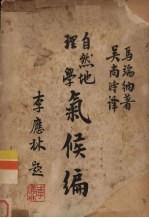 馬瑞納著
吳尚時譯
自然地
理學
氣候編
李應林題